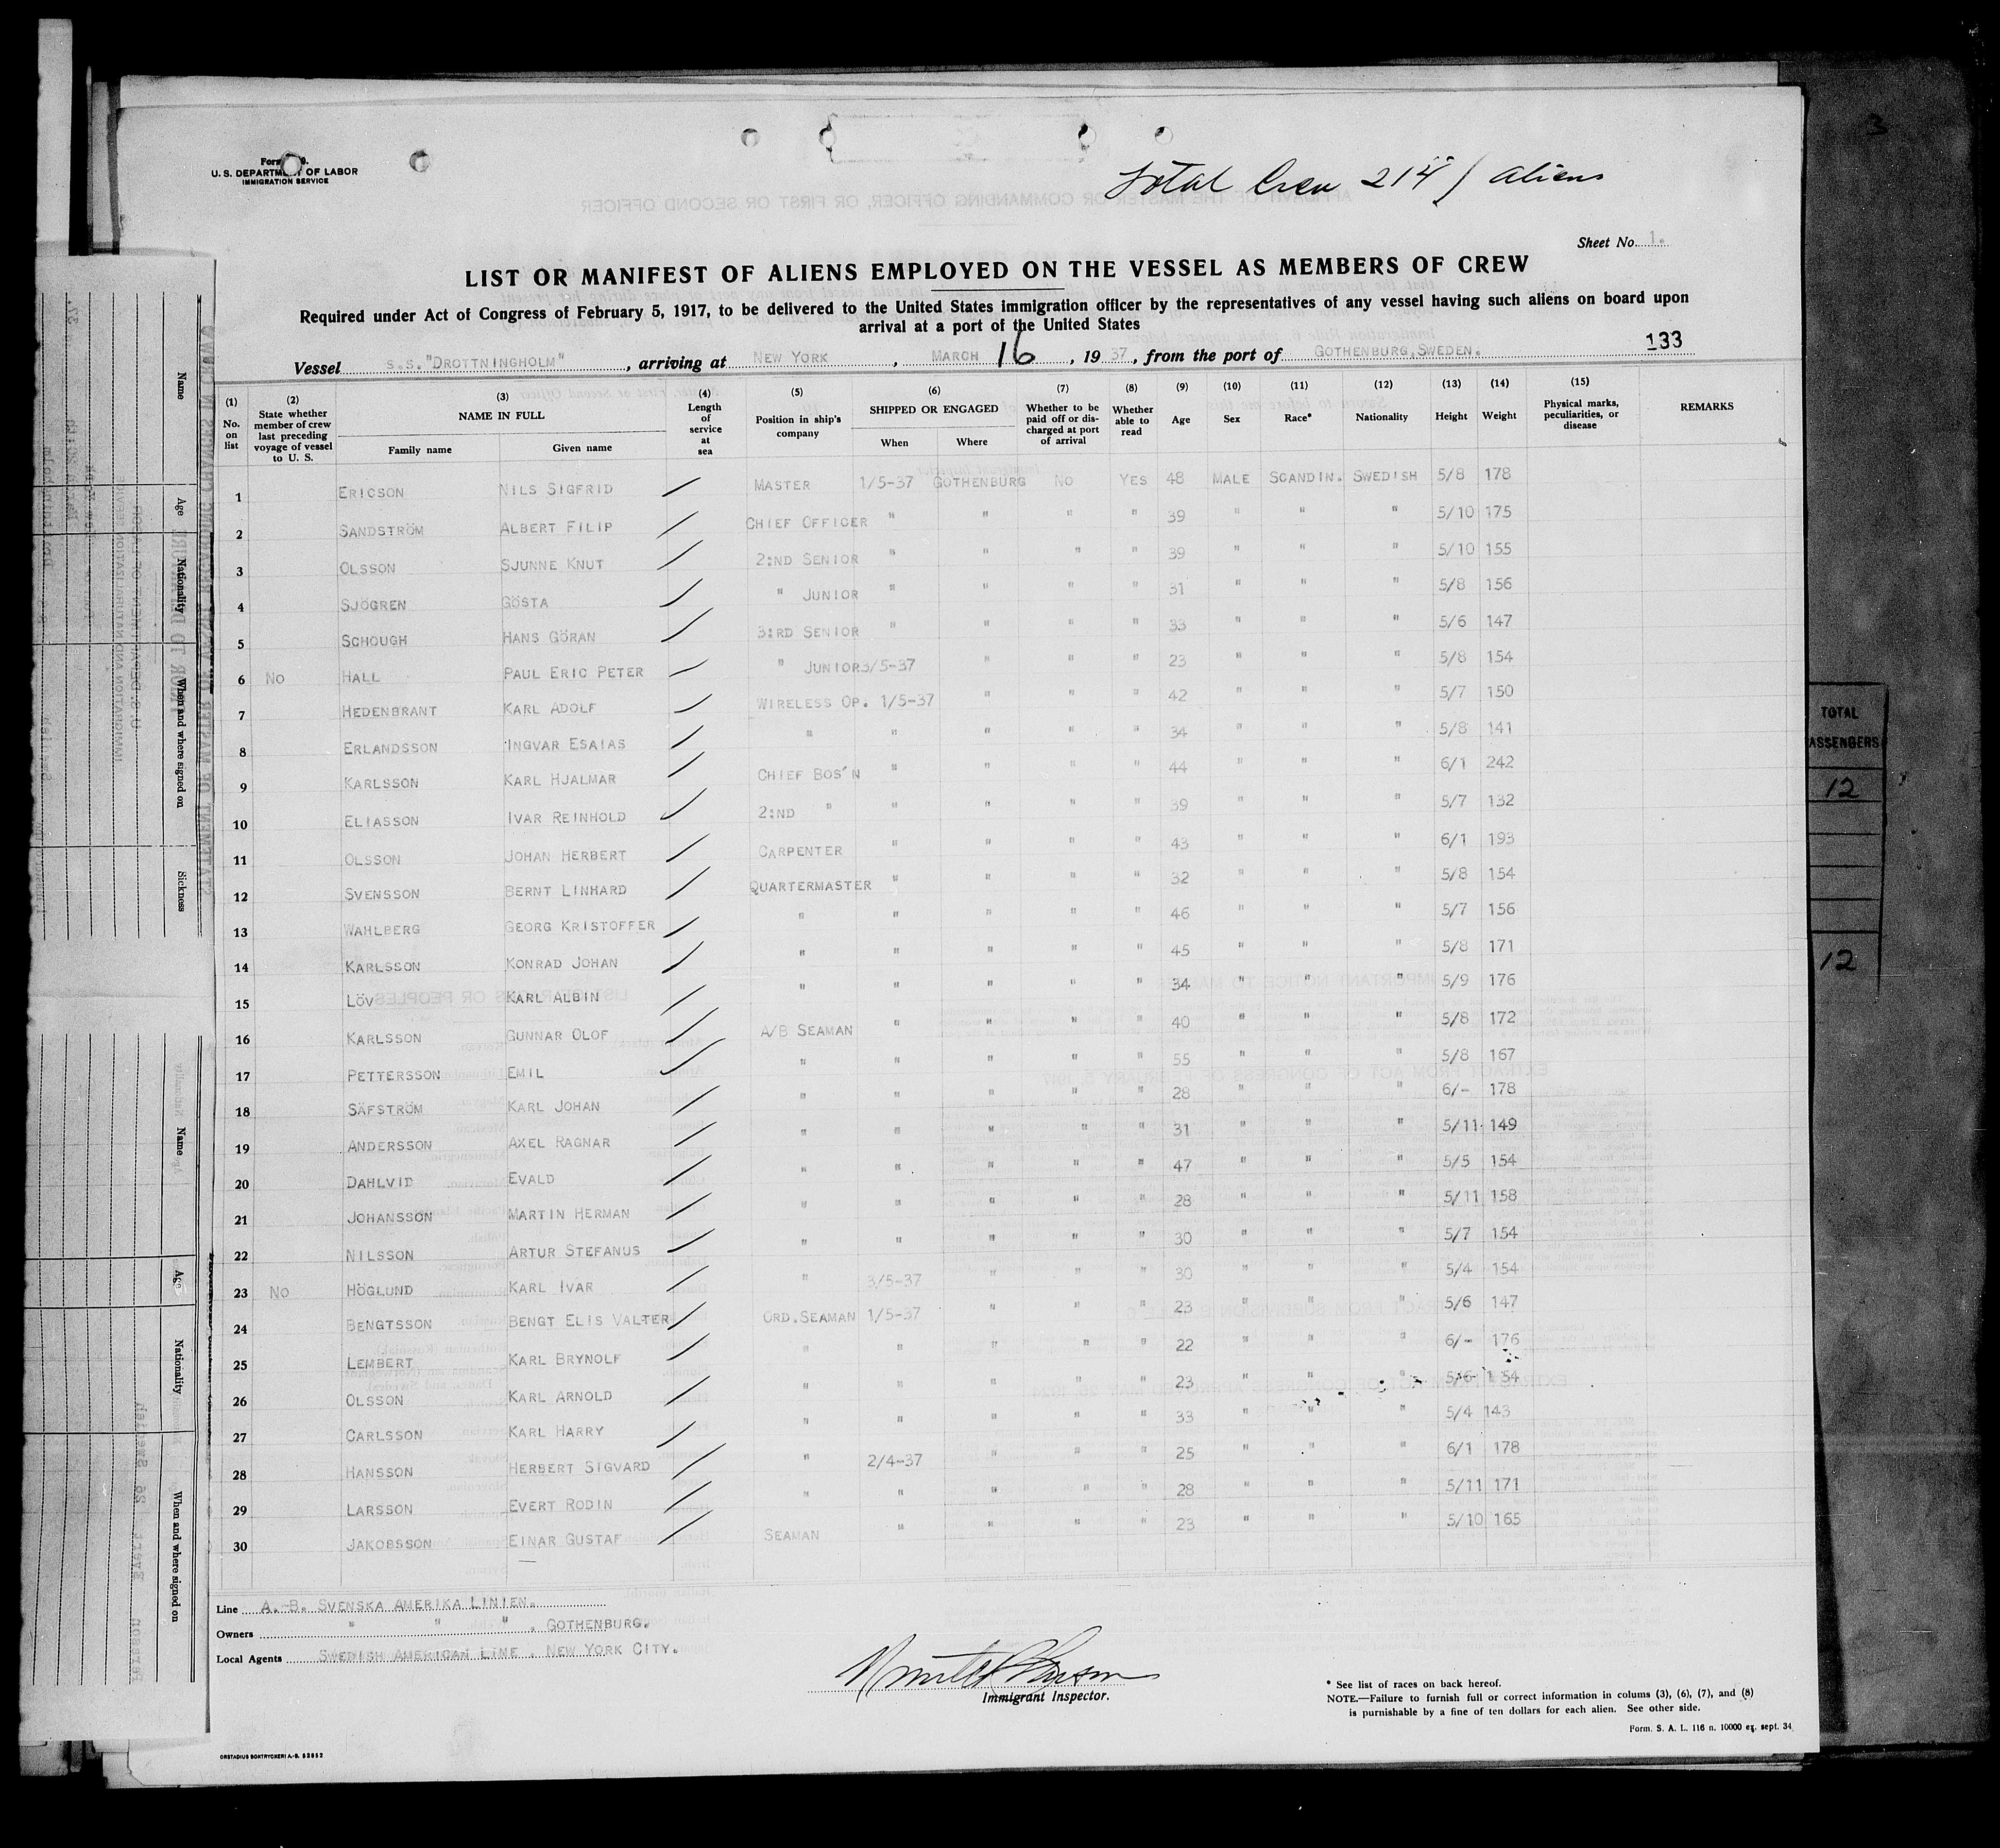 Total Crew 214 / Aliens
U. S. DEPARTMENT OF LABOR
IMMIGRATION SERVICE
Sheet No. 1.
LIST OR MANIFEST OF ALIENS EMPLOYED ON THE VESSEL AS MEMBERS OF CREW
Required under Act of Congress of February 5, 1917, to be delivered to the United States immigration officer by the representatives of any vessel having such aliens on board upon
arrival at a port of the United States
133
Vessel S.S. "DROTTNINGHOLM", arriving at NEW YORK, MARCH 16, 1937, from the port of GOTHENBURG, SWEDEN.
(1) No. on list (2) State whether member of crew last preceding voyage of vessel to U. S. (3) NAME IN FULL Family name Given name (4) Length of service at sea (5) Position in ship's company (6) SHIPPED OR ENGAGED When Where (7) Whether to be paid off or discharged at port of arrival (8) Whether able to read (9) Age (10) Sex (11) Race* (12) Nationality (13) Height (14) Weight (15) Physical marks, peculiarities, or disease REMARKS
1 ERICSON NILS SIGFRID / MASTER 1/5-37 GOTHENBURG NO YES 48 MALE SCANDIN. SWEDISH 5/8 178
2 SANDSTRÖM ALBERT FILIP / CHIEF OFFICER " " " " 39 " " " 5/10 175
3 OLSSON SJUNNE KNUT / 2:ND SENIOR " " " " 39 " " " 5/10 155
4 SJÖGREN GÖSTA / " JUNIOR " " " " 31 " " " 5/8 156
5 SCHOUGH HANS GÖRAN / 3:RD SENIOR " " " " 33 " " " 5/6 147
6 NO HALL PAUL ERIC PETER / " JUNIOR 3/5-37 " " " 23 " " " 5/8 154
7 HEDENBRANT KARL ADOLF / WIRELESS OP. 1/5-37 " " " 42 " " " 5/7 150
8 ERLANDSSON INGVAR ESAIAS / " " " " " 34 " " " 5/8 141
9 KARLSSON KARL HJALMAR / CHIEF BOS'N " " " " 44 " " " 6/1 242
10 ELIASSON IVAR REINHOLD / 2:ND " " " " " 39 " " " 5/7 132
11 OLSSON JOHAN HERBERT / CARPENTER " " " " 43 " " " 6/1 193
12 SVENSSON BERNT LINHARD / QUARTERMASTER " " " " 32 " " " 5/8 154
13 WAHLBERG GEORG KRISTOFFER / " " " " " 46 " " " 5/7 156
14 KARLSSON KONRAD JOHAN / " " " " " 45 " " " 5/8 171
15 LÖV KARL ALBIN / " " " " " 34 " " " 5/9 176
16 KARLSSON GUNNAR OLOF / A/B SEAMAN " " " " 40 " " " 5/8 172
17 PETTERSSON EMIL / " " " " " 55 " " " 5/8 167
18 SÄFSTRÖM KARL JOHAN / " " " " " 28 " " " 6/- 178
19 ANDERSSON AXEL RAGNAR / " " " " " 31 " " " 5/11 149
20 DAHLVID EVALD / " " " " " 47 " " " 5/5 154
21 JOHANSSON MARTIN HERMAN / " " " " " 28 " " " 5/11 158
22 NILSSON ARTUR STEFANUS / " " " " " 30 " " " 5/7 154
23 NO HÖGLUND KARL IVAR / " 3/5-37 " " " 30 " " " 5/4 154
24 BENGTSSON BENGT ELIS VALTER / ORD.SEAMAN 1/5-37 " " " 23 " " " 5/6 147
25 LEMBERT KARL BRYNOLF / " " " " " 22 " " " 6/- 176
26 OLSSON KARL ARNOLD / " " " " " 23 " " " 5/6 154
27 CARLSSON KARL HARRY / " " " " " 33 " " " 5/4 143
28 HANSSON HERBERT SIGVARD / " 2/4-37 " " " 25 " " " 6/1 178
29 LARSSON EVERT RODIN / " " " " " 28 " " " 5/11 171
30 JAKOBSSON EINAR GUSTAF / SEAMAN " " " " 23 " " " 5/10 165
Line A.-B. SVENSKA AMERIKA LINIEN.
Owners " " " . GOTHENBURG.
Local Agents SWEDISH AMERICAN LINE . NEW YORK CITY.
Immigrant Inspector.
* See list of races on back hereof.
NOTE.—Failure to furnish full or correct information in colums (3), (6), (7), and (8)
is purnishable by a fine of ten dollars for each alien. See other side.
Form. S. A. L. 116 n. 10000 ex. sept. 34
Name
Age
Nationality
When and where signed on
Sickness
Name
Age
Nationality
When and where signed on
3
TOTAL
ASSENGERS
12
12